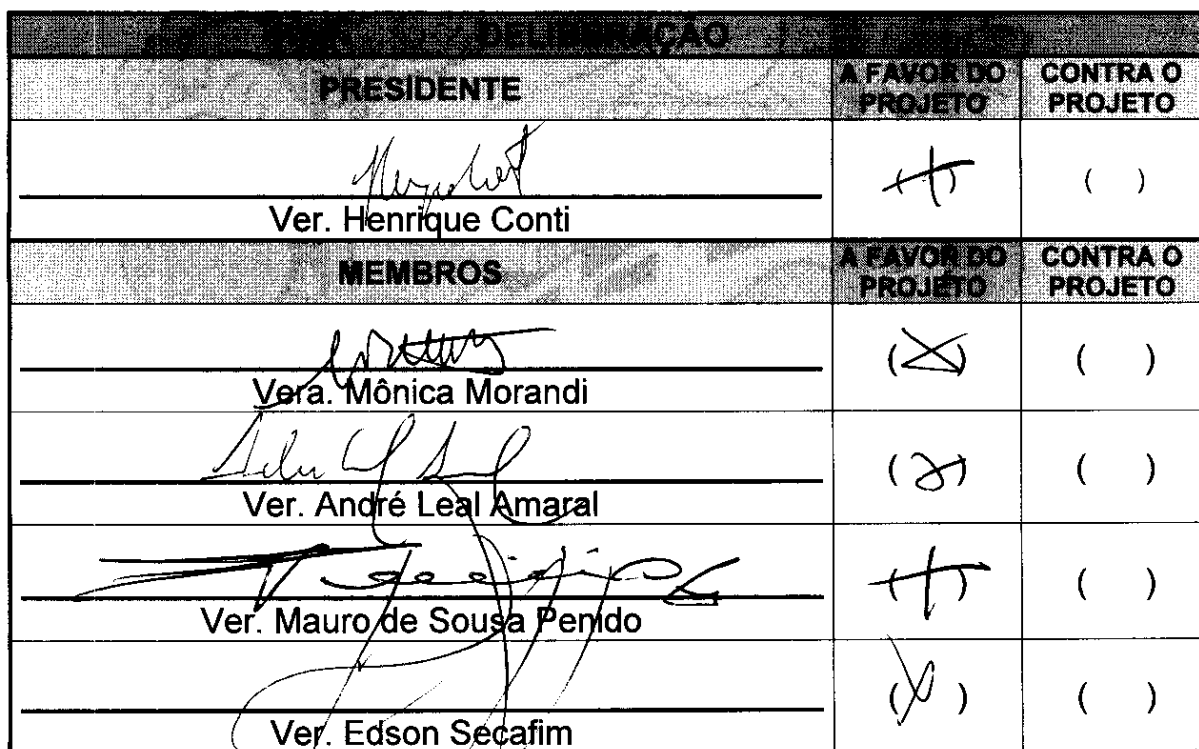 DELIBERAÇÃO
PRESIDENTE A FAVOR DO PROJETO CONTRA O PROJETO
( ) ( )
Ver. Henrique Conti
MEMBROS A FAVOR DO PROJETO CONTRA O PROJETO
(X) ( )
Vera. Mônica Morandi
( ) ( )
Ver. André Leal Amaral
( ) ( )
Ver. Mauro de Sousa Penido
(X) ( )
Ver. Edson Secafim